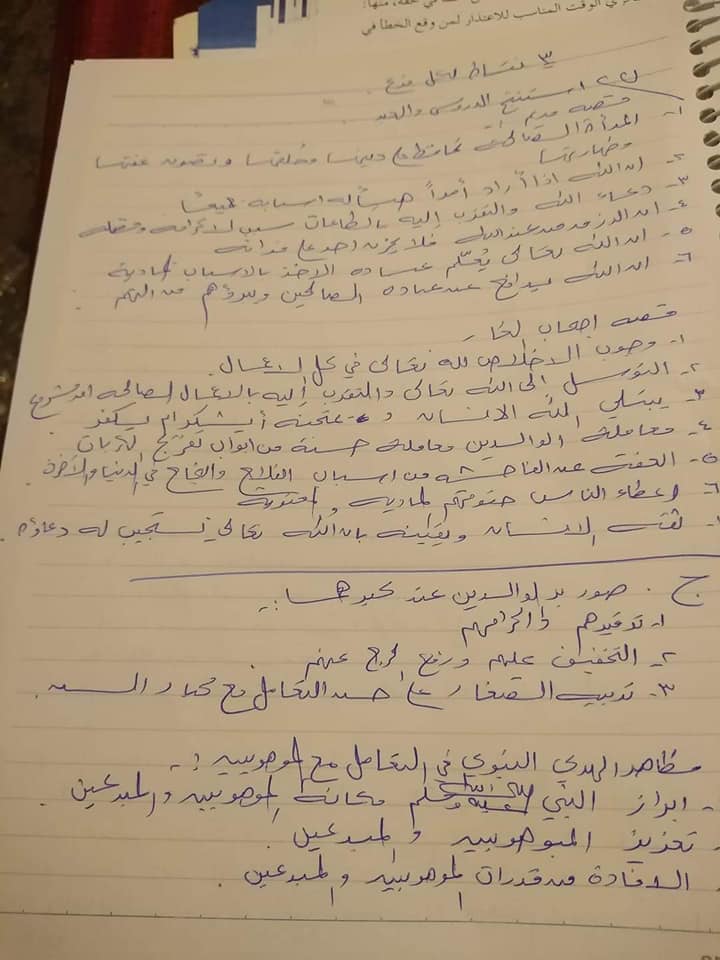 الوقت المناسب للاعتذار لمن وقع الخطأ في حقه، منها:
٣ نشاط لكل فرع.
س٢ استنتج الدروس والعبر
قصة مريم
١- المرأة الصالحة تحافظ على دينها وخلقها وتصون عفتها
وطهارتها
٢- ان الله اذا أراد أمراً هيأ له اسبابه جميعها
٣- دعاء الله والتقرب إليه بالطاعات سبب لاكرامه وفضله
٤- ان الرزق من عند الله فلا يحزن احد على فواته
٥- ان الله تعالى يُعلّم عباده الاخذ بالاسباب المادية
٦- ان الله يدافع عن عباده الصالحين ويبرؤهم من التهم
قصه اصحاب الغار
١- وجوب الاخلاص لله تعالى في كل الاعمال.
٢- التوسل إلى الله تعالى والتقرب إليه بالاعمال الصالحه امر مشروع
٣- يبتلى الله الانسان و يمتحنه أيشكر ام يكفر
٤- معاملة الوالدين معاملة حسنة من ابواب تفريج الكربات
٥- العفة عن الفاحشه من اسباب الفلاح والنجاح في الدنيا والآخرة.
٦- إعطاء الناس حقوقهم المادية والمعنوية
٧- ثقة الانسان ويقينه بان الله تعالى يستجيب له دعاؤه.
ج. صور بر الوالدين عند كبرهما:-
١- توقيرهم واكرامهم
٢- التخفيف عليهم ورفع الحرج عنهم.
٣- تدريب الصغار على حسن التعامل مع كبار السن.
مظاهر الهدي النبوي في التعامل مع الموهوبين:-
- ابراز النبي صلى الله عليه وسلم مكانة الموهوبين والمبدعين.
- تعزيز الموهوبين والمبدعين.
- الافادة من قدرات الموهوبين والمبدعين.